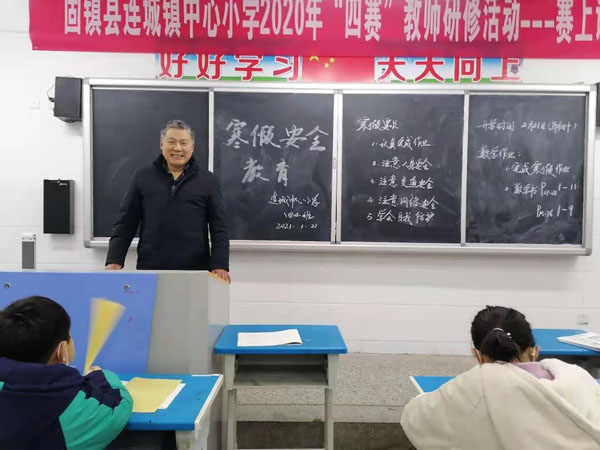 固镇县连城镇中心小学2020年“四赛”教师研修活动---赛上课
好好学习
天天向上
寒假安全
教育
连城中心小学
2021.1.22
寒假要求
1.认真完成作业
2.注意人身安全
3.注意交通安全
4.注意网络安全
5.学会自我防护
开学时间 2月21日
数学作业:
1.完成寒假作业
2.数学书